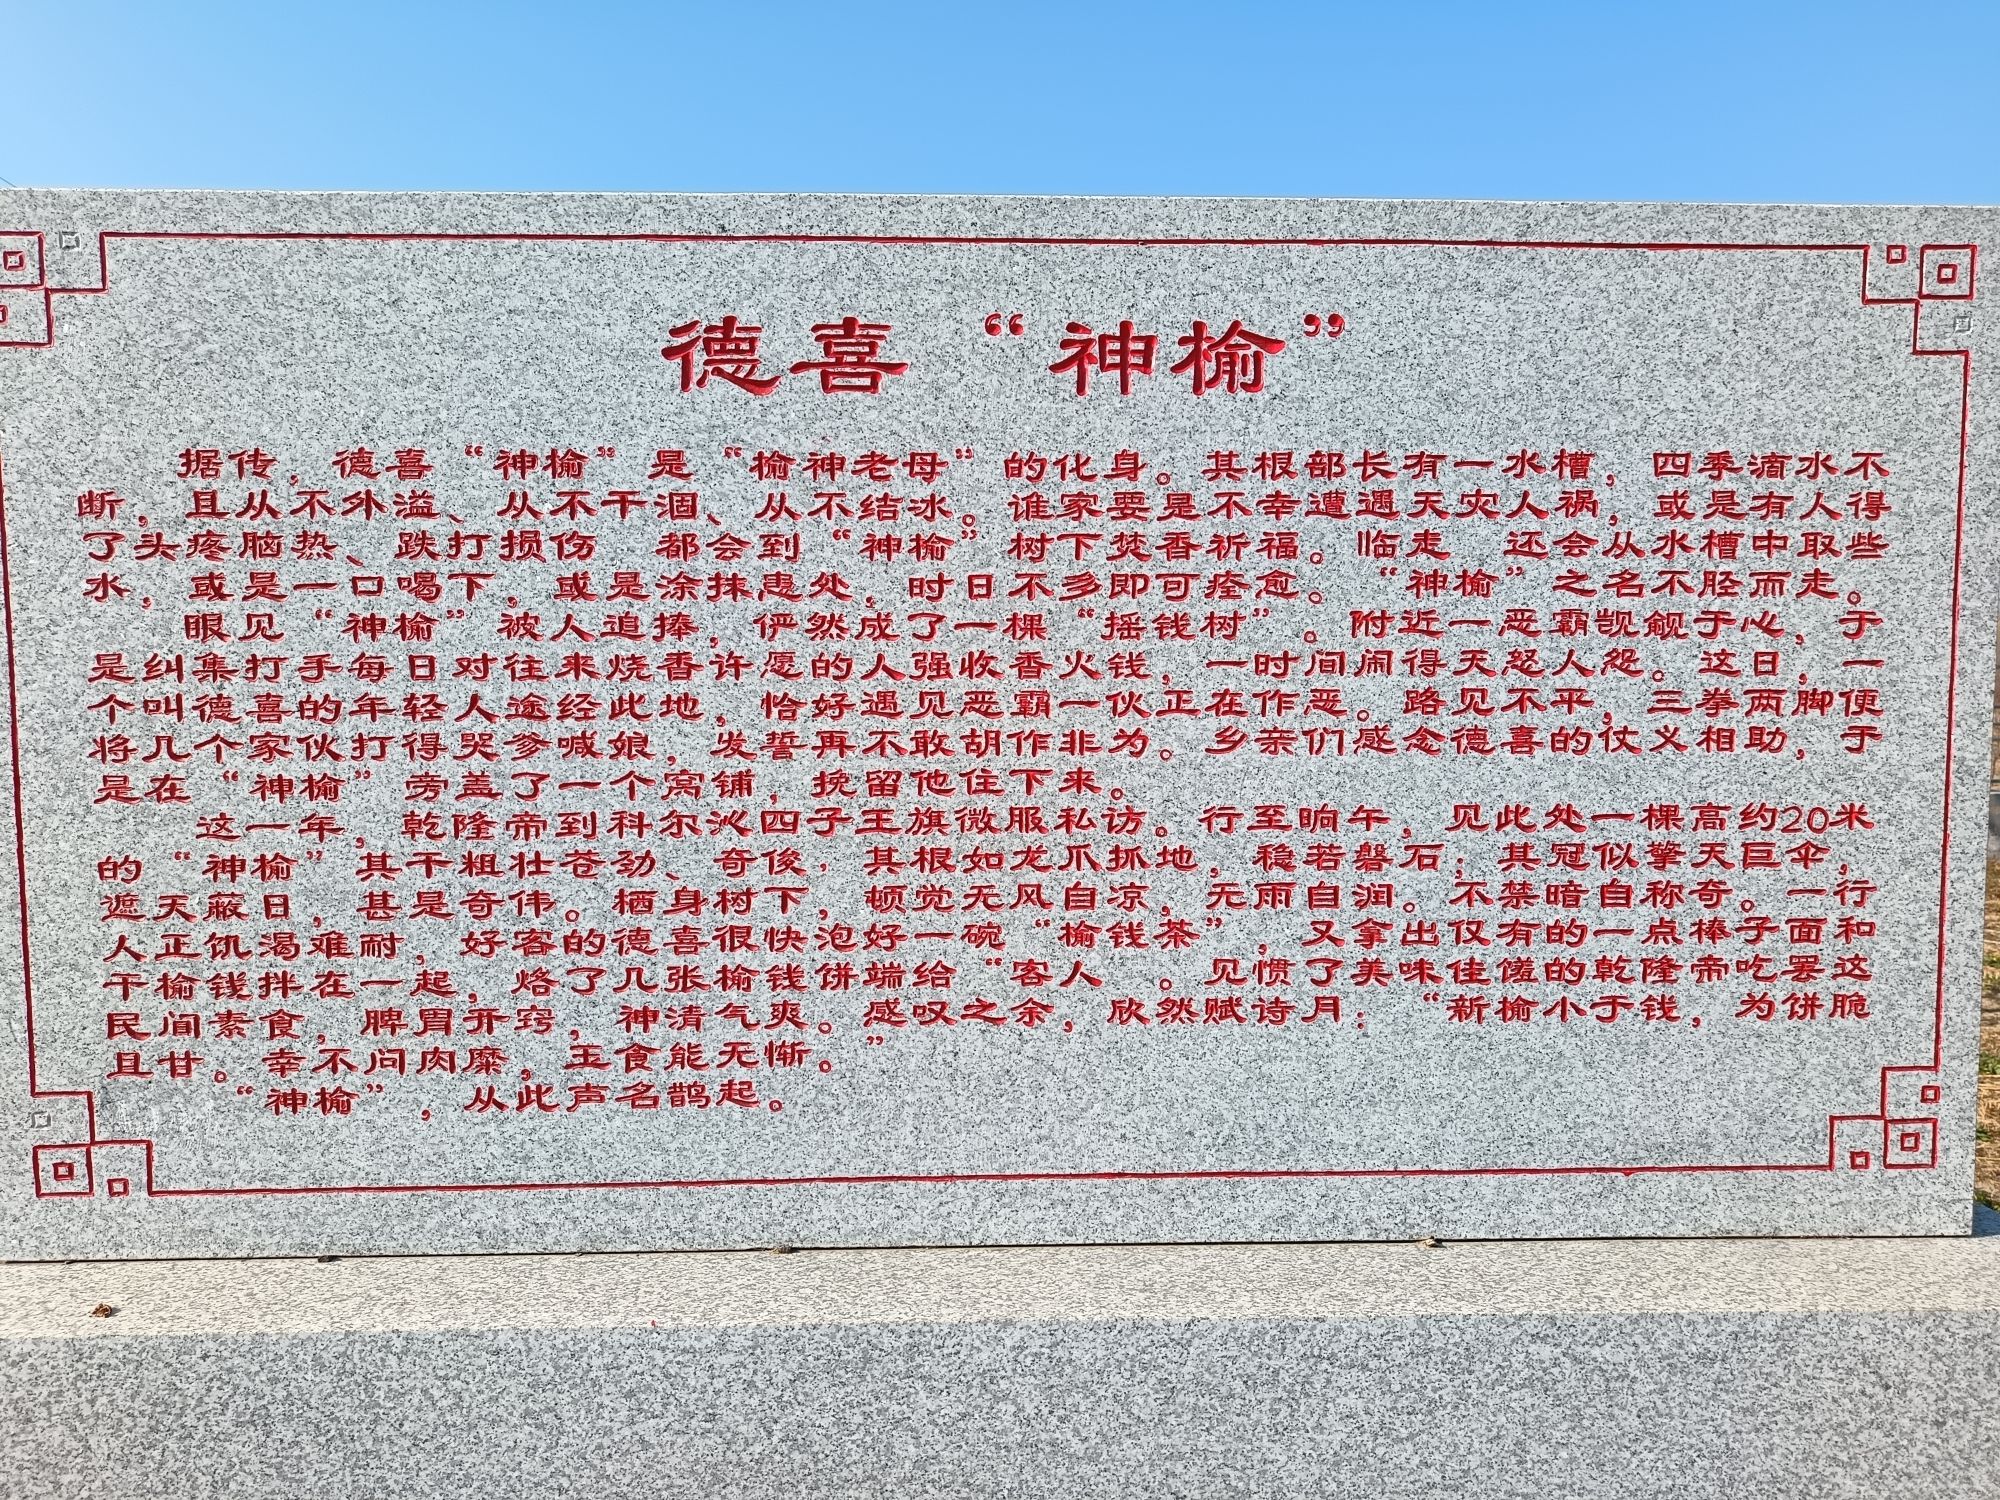 德喜“神榆”
据传，德喜“神榆”是“榆神老母”的化身。其根部长有一水槽，四季滴水不
断，且从不外溢、从不干涸、从不结冰。谁家要是不幸遭遇天灾人祸，或是有人得
了头疼脑热、跌打损伤 都会到“神榆”树下焚香祈福。临走 还会从水槽中取些
水，或是一口喝下，或是涂抹患处，时日不多即可痊愈。“神榆”之名不胫而走。
眼见“神榆”被人追捧，俨然成了一棵“摇钱树”。附近一恶霸觊觎于心，于
是纠集打手每日对往来烧香许愿的人强收香火钱，一时间闹得天怒人怨。这日，一
个叫德喜的年轻人途经此地，恰好遇见恶霸一伙正在作恶。路见不平，三拳两脚便
将几个家伙打得哭爹喊娘，发誓再不敢胡作非为。乡亲们感念德喜的仗义相助，于
是在“神榆”旁盖了一个窝铺，挽留他住下来。
这一年，乾隆帝到科尔沁四子王旗微服私访。行至晌午，见此处一棵高约20米
的“神榆”其干粗壮苍劲、奇俊，其根如龙爪抓地，稳若磐石；其冠似擎天巨伞，
遮天蔽日，甚是奇伟。栖身树下，顿觉无风自凉，无雨自润。不禁暗自称奇。一行
人正饥渴难耐，好客的德喜很快泡好一碗“榆钱茶”，又拿出仅有的一点棒子面和
干榆钱拌在一起，烙了几张榆钱饼端给“客人 。见惯了美味佳馐的乾隆帝吃罢这
民间素食，脾胃开窍，神清气爽。感叹之余，欣然赋诗月：“新榆小于钱，为饼脆
且甘。幸不问肉糜，玉食能无惭。”
“神榆”，从此声名鹊起。